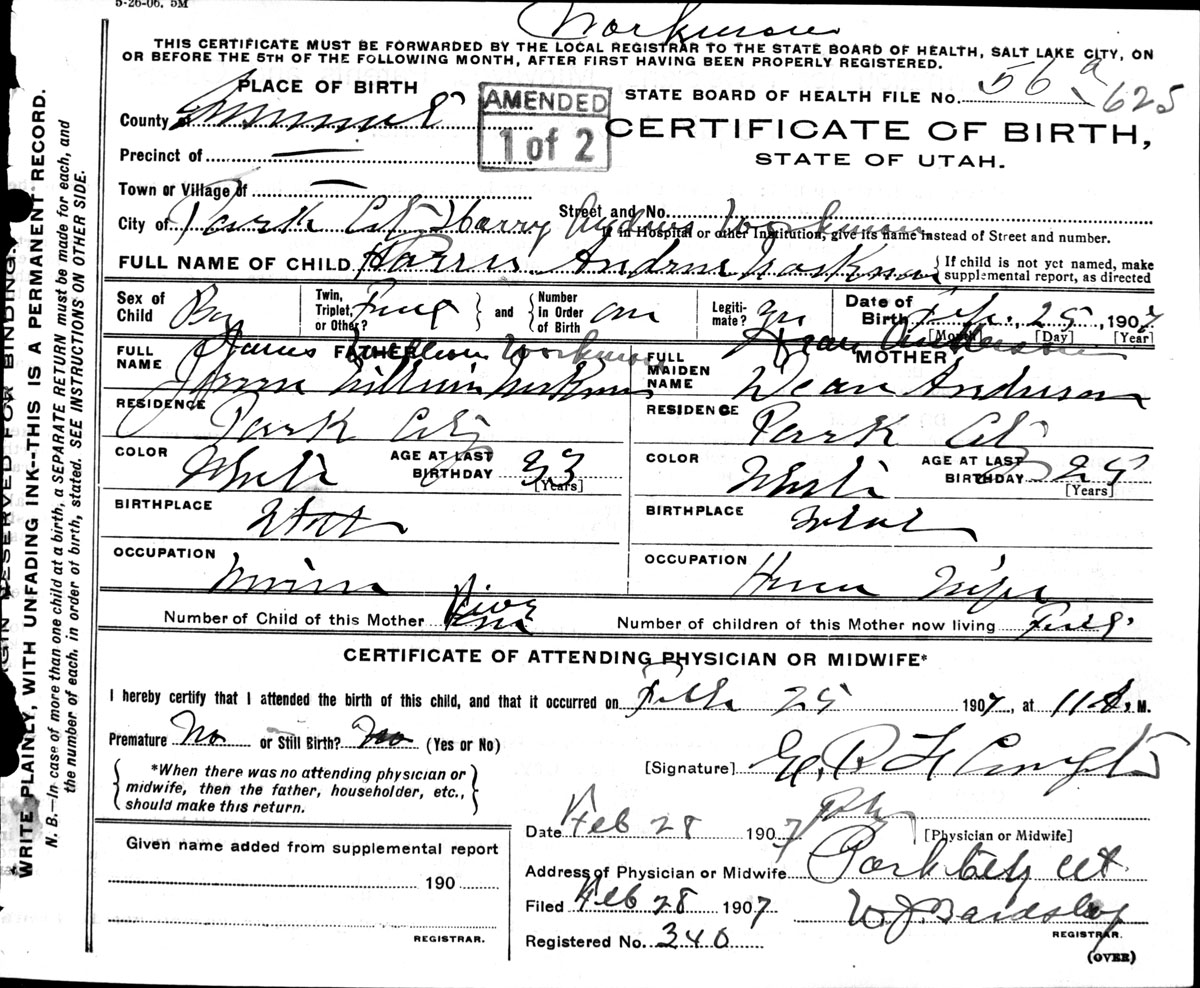 5-26-06. 5M
Workman
THIS CERTIFICATE MUST BE FORWARDED BY THE LOCAL REGISTRAR TO THE STATE BOARD OF HEALTH, SALT LAKE CITY, ON
OR BEFORE THE 5TH OF THE FOLLOWING MONTH, AFTER FIRST HAVING BEEN PROPERLY REGISTERED.
PLACE OF BIRTH
AMENDED
1 of 2
STATE BOARD OF HEALTH FILE No. 56 a 625
County of Summit
CERTIFICATE OF BIRTH,
STATE OF UTAH.
Precinct of —
Town or Village of —
Street and No.
City of Park City Harry Andrew Workman
If in Hospital or other Institution, give its name instead of Street and number.
FULL NAME OF CHILD Harris Andrew Workman
If child is not yet named, make
supplemental report, as directed
Sex of Child Boy
Twin, Triplet, or Other?
and
Number In Order of Birth
Legiti- mate? Yes
Date of Birth Feb. 25, 1907
[Month] [Day] [Year]
James William Workman
Dean Anderson
FATHER
MOTHER
FULL NAME William Workman
FULL MAIDEN NAME Dean Anderson
RESIDENCE Park City
RESIDENCE Park City
COLOR White
AGE AT LAST BIRTHDAY 33
[Years]
COLOR White
AGE AT LAST BIRTHDAY 25
[Years]
BIRTHPLACE Utah
BIRTHPLACE
OCCUPATION Miner
OCCUPATION House Wife
Number of Child of this Mother Five
Number of children of this Mother now living
CERTIFICATE OF ATTENDING PHYSICIAN OR MIDWIFE*
I hereby certify that I attended the birth of this child, and that it occurred on Feb 25 1907, at 11 A. M.
Premature No or Still Birth? No (Yes or No)
*When there was no attending physician or
midwife, then the father, householder, etc.,
should make this return.
[Signature]
Date Feb 28 1907
Phy
[Physician or Midwife]
Given name added from supplemental report
190
REGISTRAR.
Address of Physician or Midwife Park City Ut.
Filed Feb 28 1907
W J Bardsley
REGISTRAR.
Registered No. 340
(OVER)
MARGIN RESERVED FOR BINDING,
WRITE PLAINLY, WITH UNFADING INK--THIS IS A PERMANENT RECORD.
N. B.—In case of more than one child at a birth, a SEPARATE RETURN must be made for each, and
the number of each, in order of birth, stated. SEE INSTRUCTIONS ON OTHER SIDE.